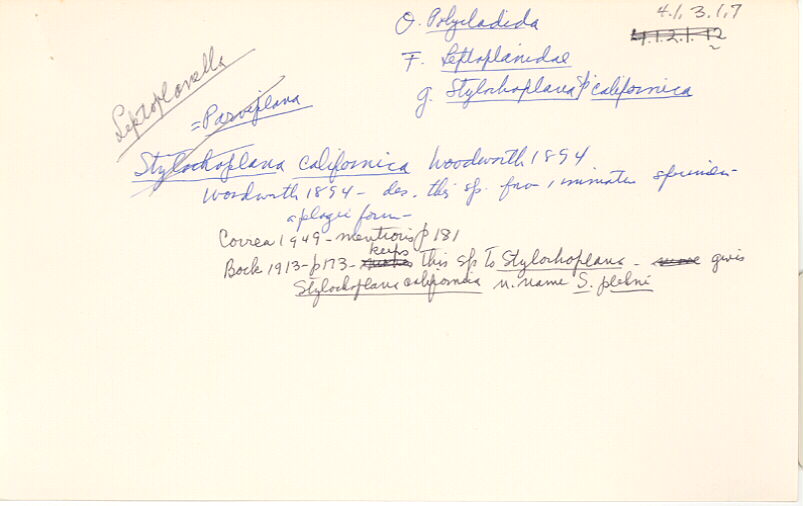 O. Polycladida
4.1.3.1.7
4.1.2.1.12
F. Leptoplanidae
g. Stylochoplana californica
Leptoplanella
= Parviplana
Stylochoplana californica Woodworth 1894
Woodworth 1894 - des. this sp. from 1 immature specimen
a plagic form -
Correa 1949 - mentions p 181
Bock 1913 - p 173 - keeps this sp to Stylochoplana - gives
Stylochoplana californica n. name S. plehni